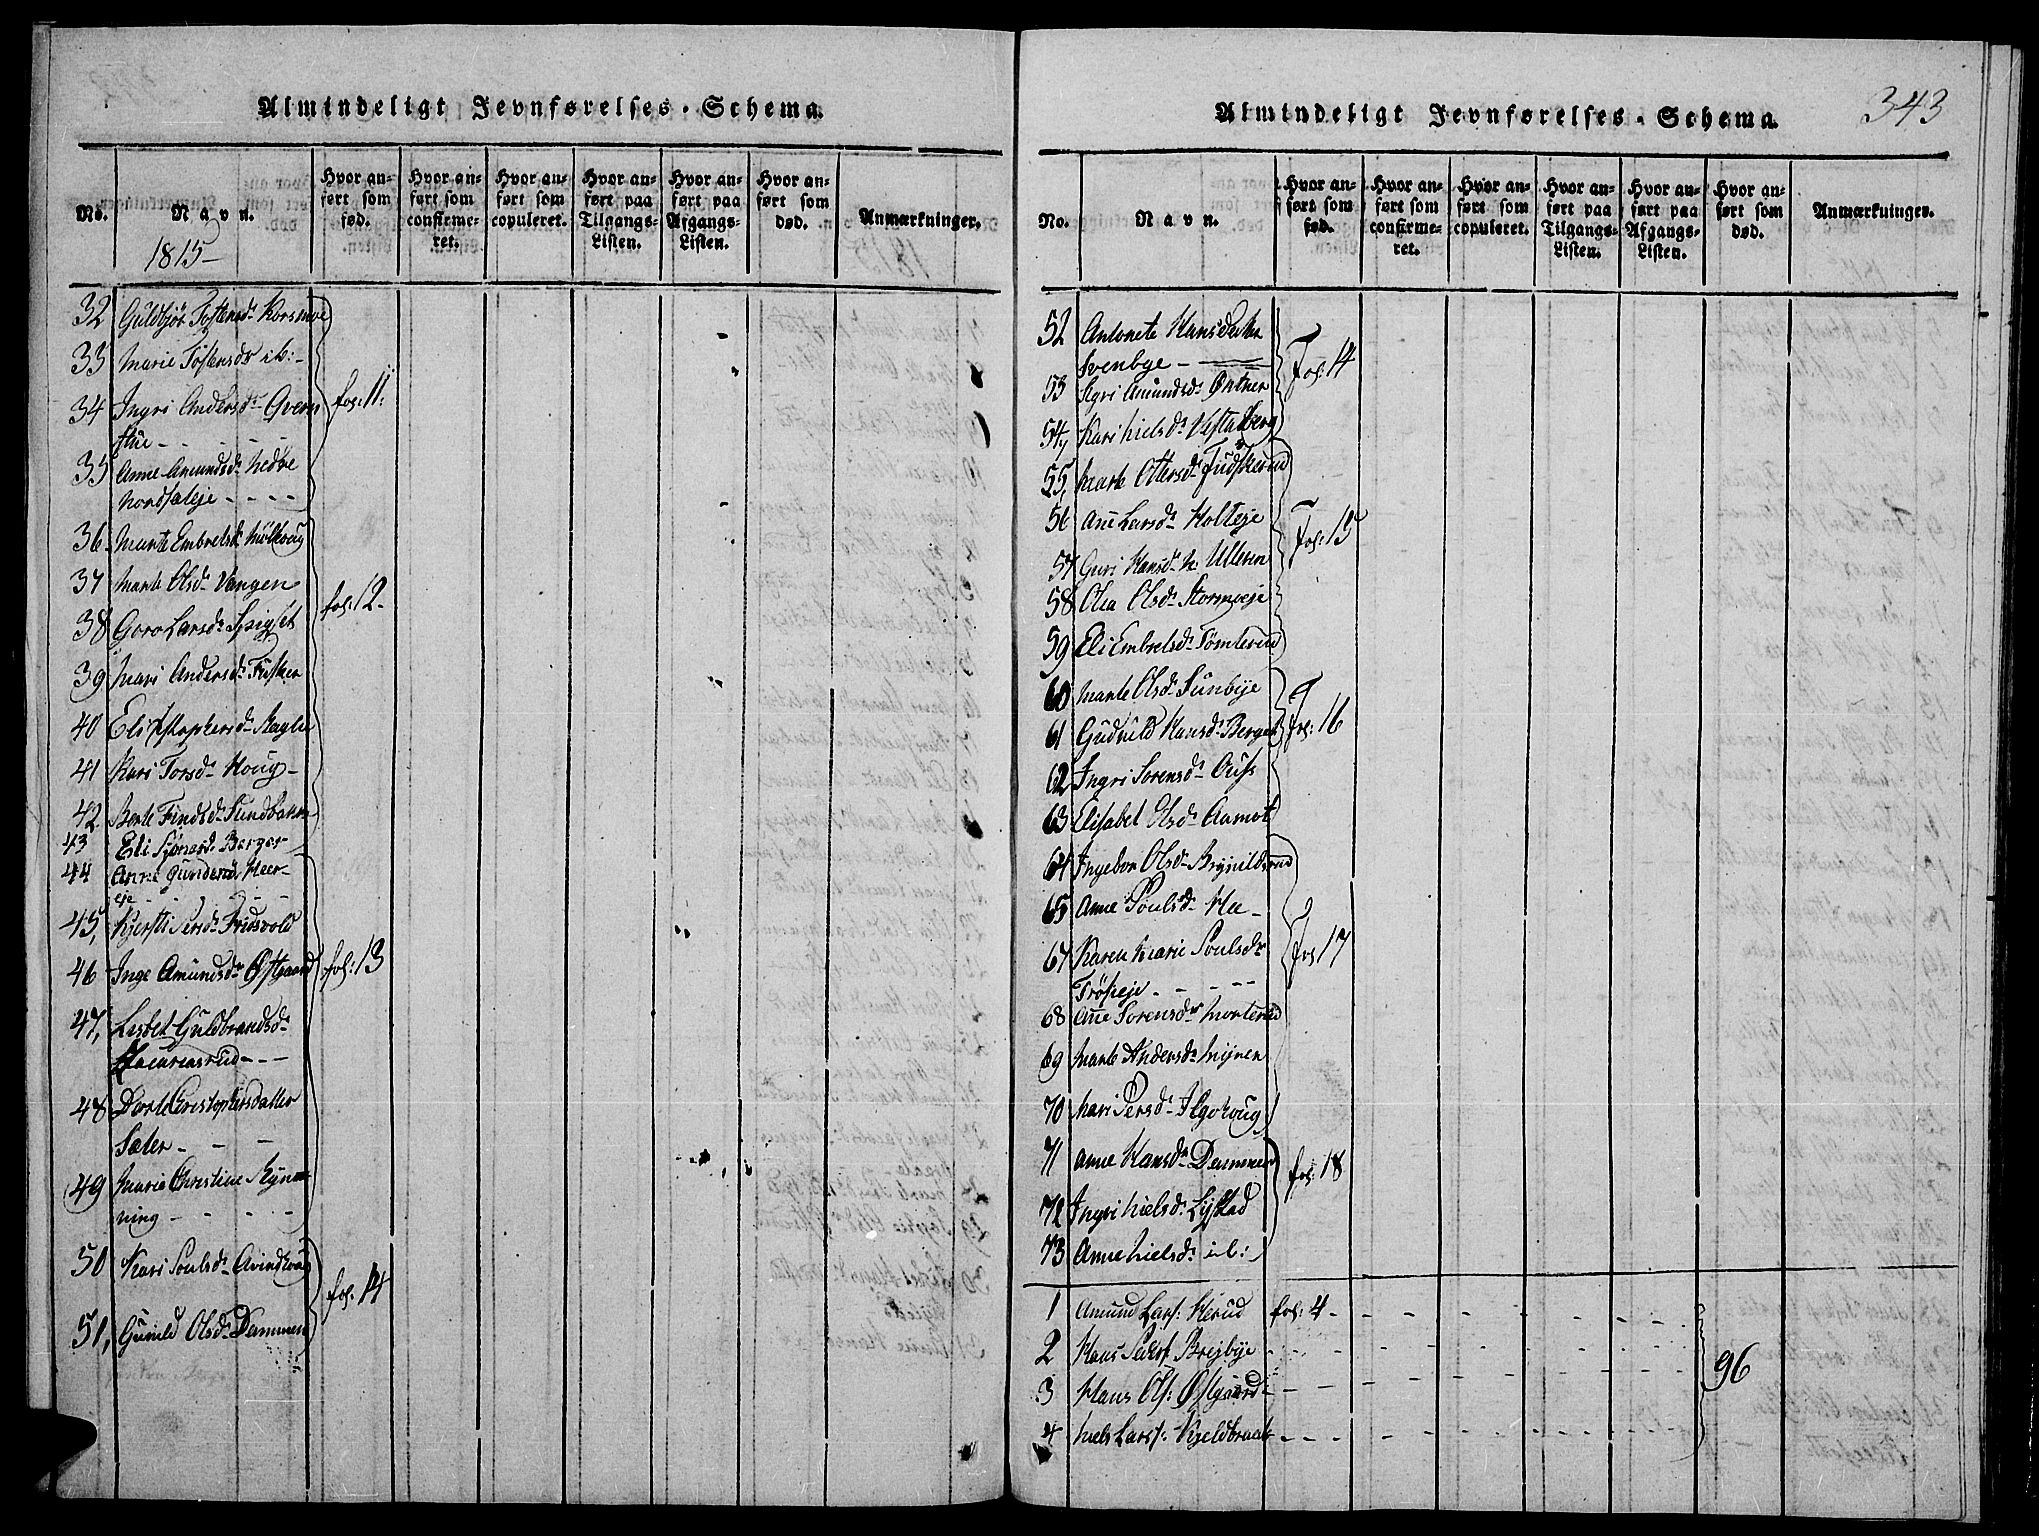 Almindeligt Jevnførelses-Schema.
No.
Navn.
Hvor anført som fød.
Hvor anført som confirmeret.
Hvor anført som copuleret.
Hvor anført paa Tilgangs-Listen.
Hvor anført paa Afgangs-Listen.
Hvor anført som død.
Anmærkninger.
1815-
32 Guldbjør Tostensdr Korsmoe
33 Marie Tostensdr ib:-
34 Ingri Andersdr fol: 11:
35 Anne Amundsdr Nedre
Nordsæteje - - - -
36 Marte Embretsdr
37 Marte Olsdr Vangen
fol: 12-
38 Goro Larsdr
39 Mari Andersdr Fusker
40 Eli
41 Kari Torsdr Houg-
42 Berte
43 Eli Berger
44 Anne Heer-
eje - - -
45, Kjersti Persdr Fridsvold
46 Inge Amundsdr Østgaard fol: 13
47, Lisbet Guldbrandsdr
Zacariasrud - - -
48 Dorte Cristophersdatter
Sæter - - -
49 Marie Christine Rynn-
ning - - - -
50 Kari Poulsdr
fol. 14
51, Gunild Olsdr Dammen
Almindeligt Jevnførelses-Schema.
343
No.
Navn.
Hvor anført som fød.
Hvor anført som confirmeret.
Hvor anført som copuleret.
Hvor anført paa Tilgangs-Listen.
Hvor anført paa Afgangs-Listen.
Hvor anført som død.
Anmærkninger.
52 Antonete Hansdatter
Svenbye - fol: 14
53 Sigri Amundsdr
54, Kari Nielsdr Vestaberg
55, Marte Ottersdr
56 Ane Larsdr Holteje
fol: 15
57 Guri Hansdr N. Ulleren
58 Olea Olsdr Stormoeje
59 Eli Embretsdr Tømterud
60 Marte Olsdr Sunbye
61 Gudnild Hansdr Berger fol: 16
62 Ingri Sorensdr Ous
63 Elisabet Olsdr Aamot
64 Ingebor Olsdr Brynildsrud
65 Anne Poulsdr Hee -
67 Karen Marie Poulsdr fol 17
Frøseje - - - -
68 Ane Sorensdr Morterud
69 Marte Andersdr Mynen
70 Mari Persdr
71 Anne Hansdr Dammen
fol: 18
72 Ingri Nielsdr Lystad
73 Anne Nielsdr ib:
1 Amund Lars: Herud fol: 4 - - - - -
2 Hans Peders. Brejbye - - - - - 96
3 Hans Ols: Østgaard - - - - -
4 Niels Lars: Kjeldbraate - - - - -